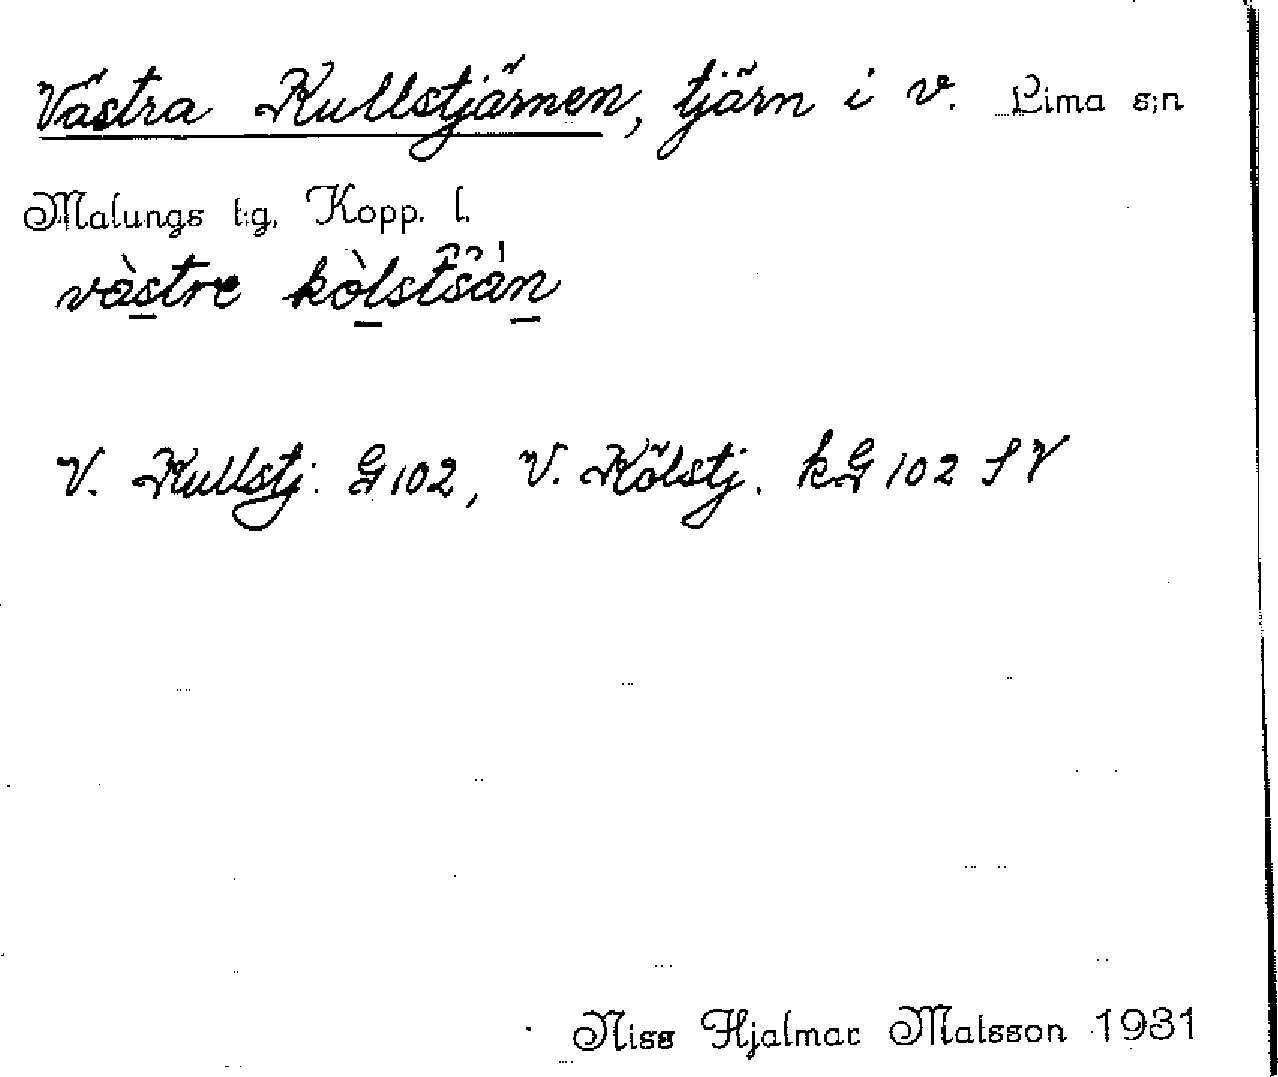 Västra Kullstjärnen, tjärn i v. Lima s:n
Malungs t:g, Kopp. l.
vàstre kòlstsán
V. Kullstj. G 102, V. Kölstj. kG 102 SV
Niss Hjalmar Matsson 1931